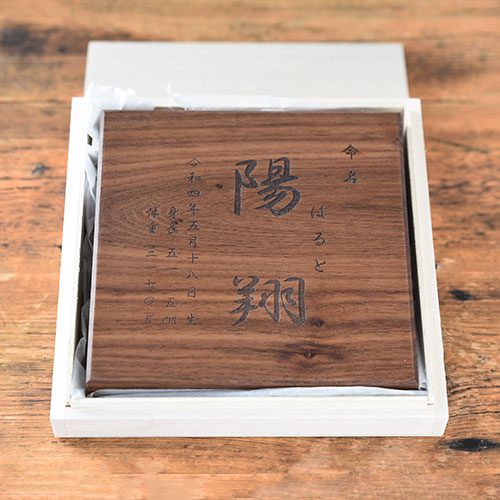 命名
はると
陽翔
令和四年五月十八日生
身長 五一・五㎝
体重 三一七〇g